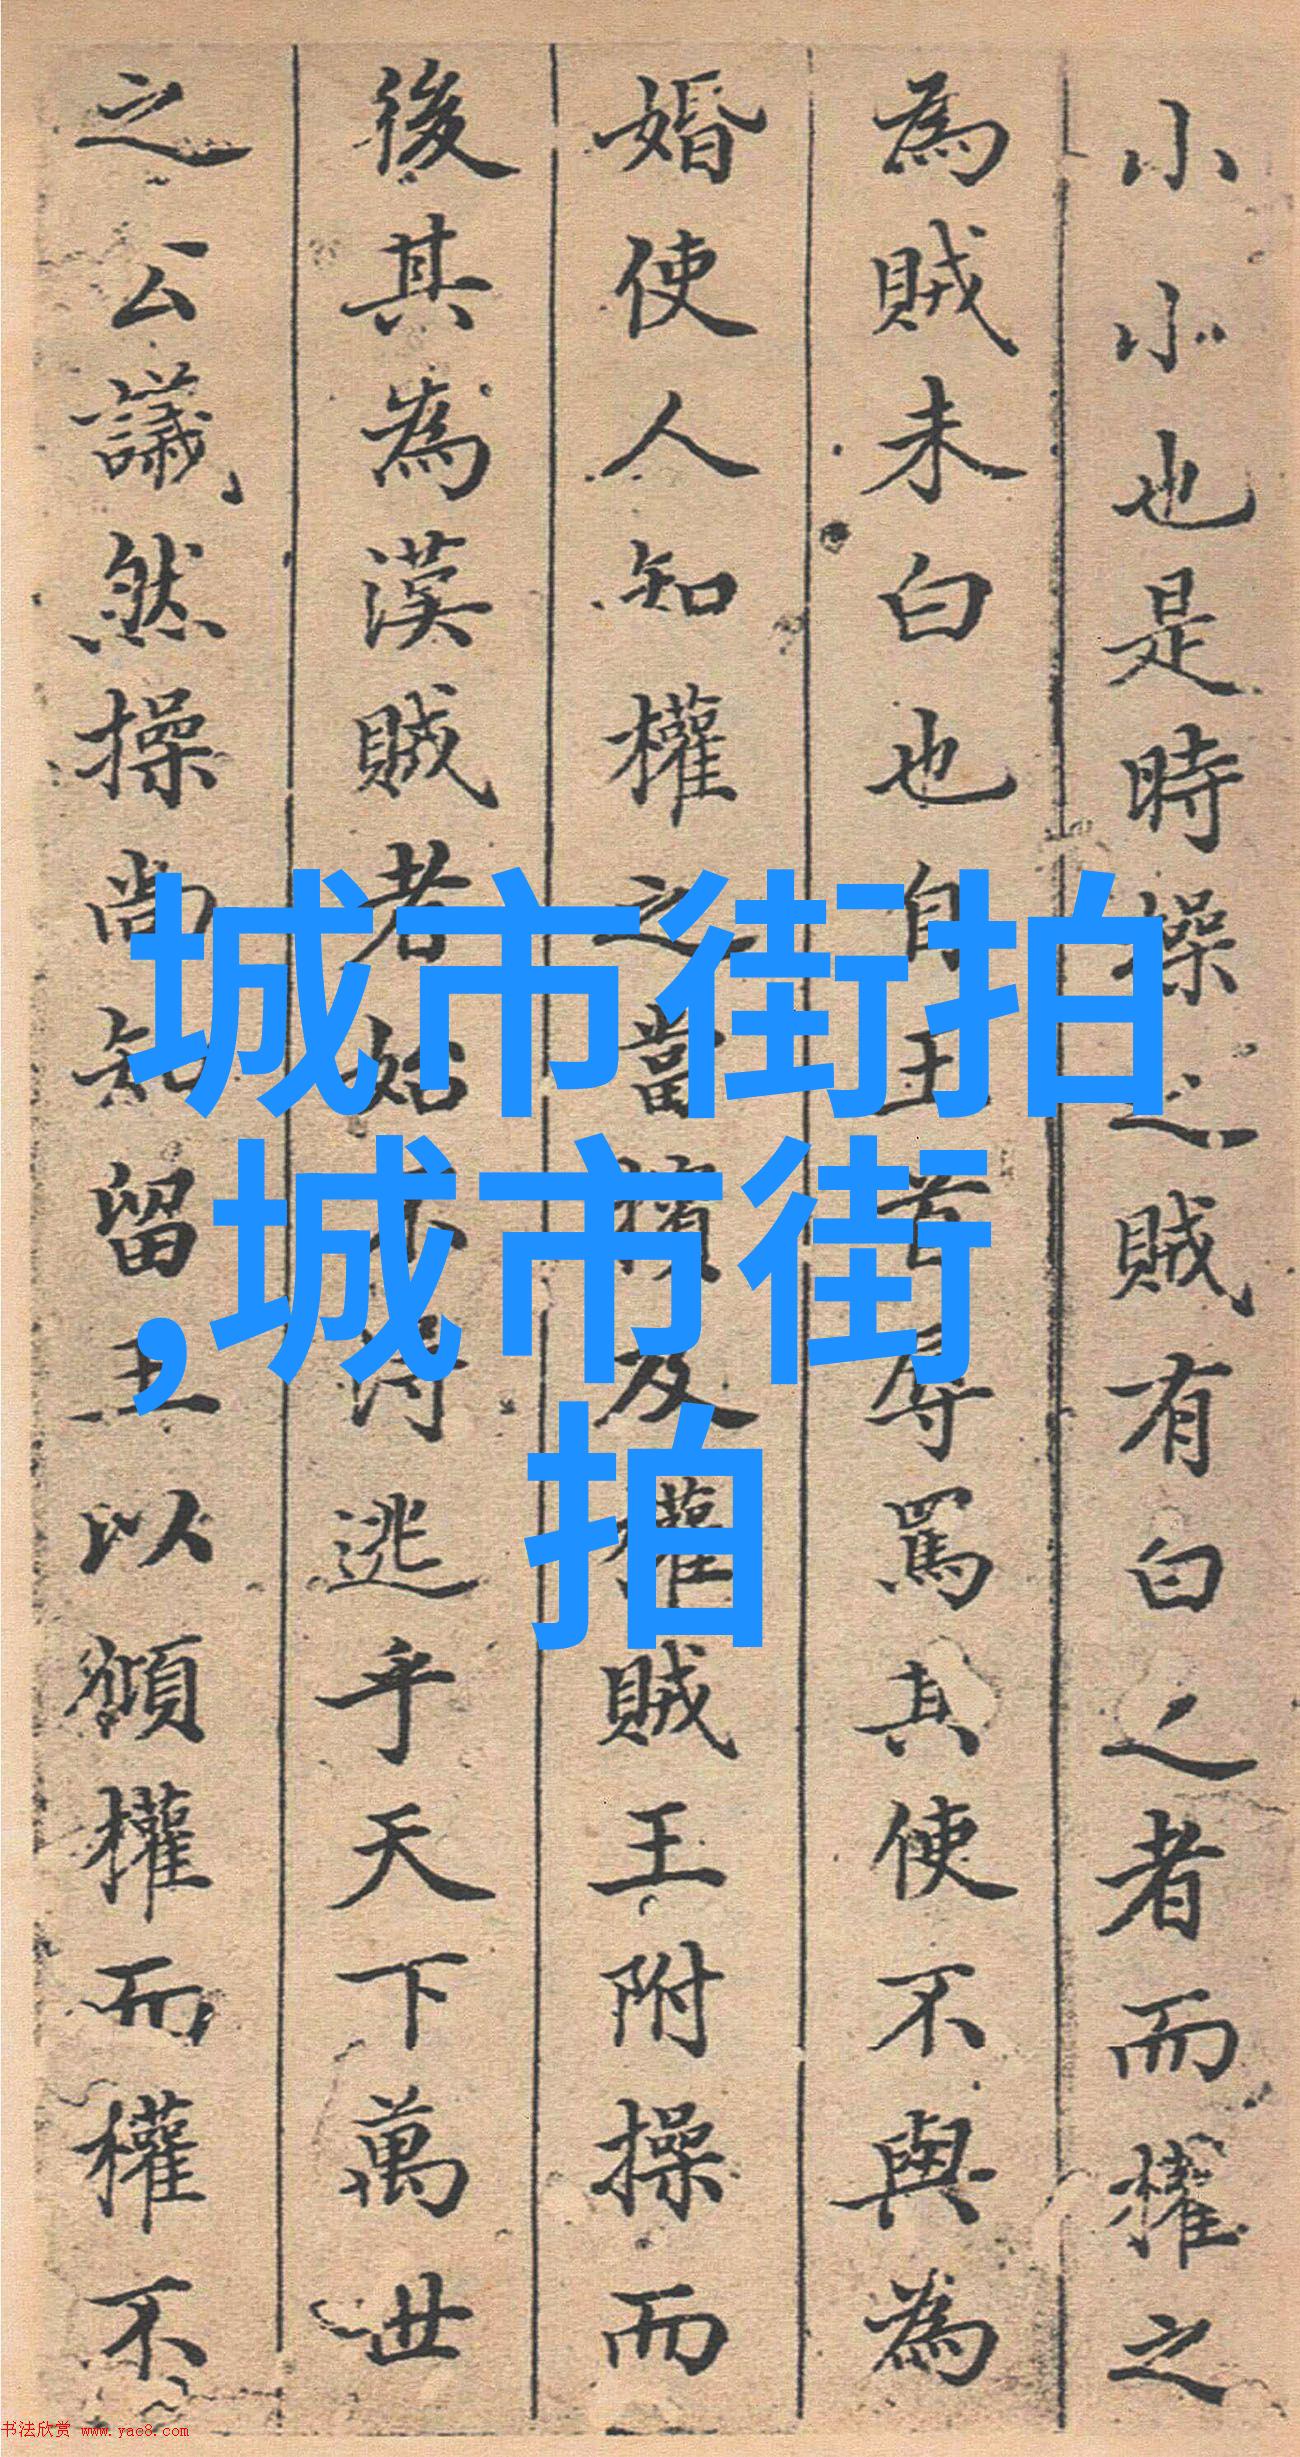 小小也是時操之賊有白之者而權之
為賊未白也自王辱罵其使不與為
婚使人知權之當擯及權賊王附操而
後其為漢賊者始不得逃乎天下萬世
之公議然操尚知留王以權而權不
城市街拍
,城市街
拍
书法欣赏 www.yac8.com